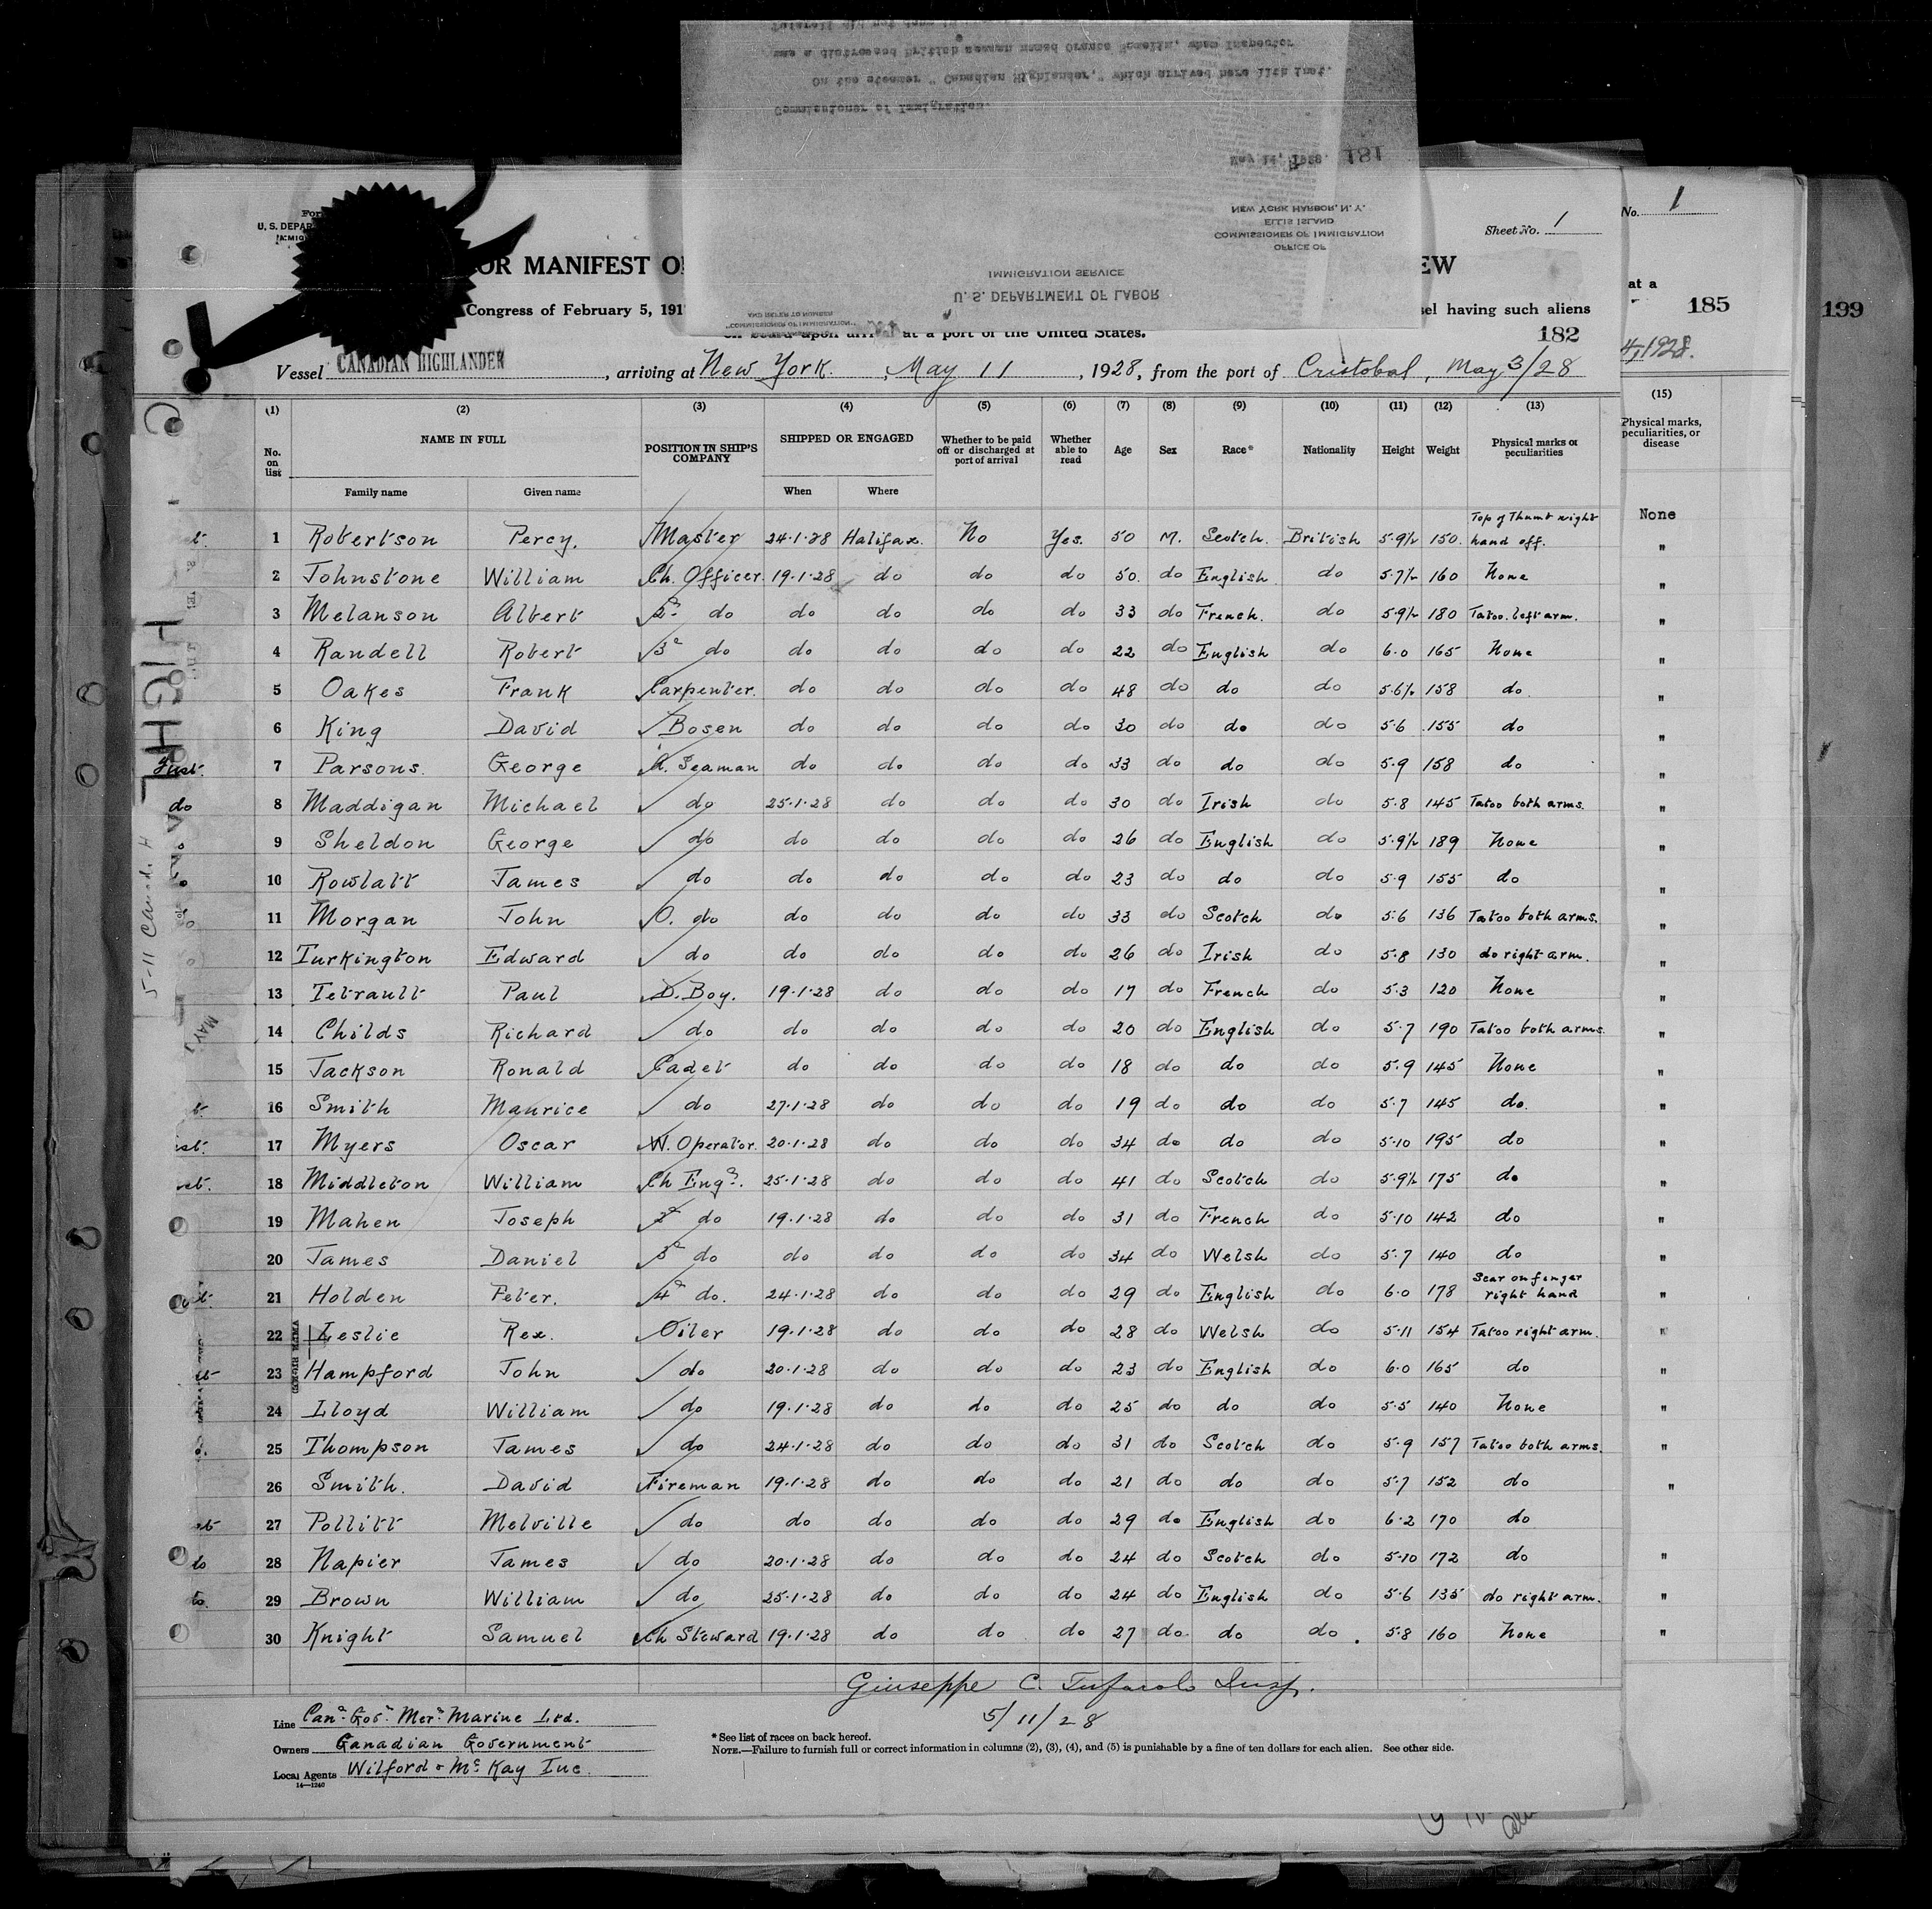 was a distressed British seaman named
On the steamer " Canadian Highlander," which arrived here 11th inst.
Commissioner of Immigration.
May 14, 1928. 181
NEW YORK HARBOR, N. Y.
ELLIS ISLAND
COMMISSIONER OF IMMIGRATION
OFFICE OF
IMMIGRATION SERVICE
U. S. DEPARTMENT OF LABOR
AND REFER TO NUMBER
"COMMISSIONER OF IMMIGRATION"
U. S. DEPAR
Sheet No. 1
No. 1
OR MANIFEST O
EW
Congress of February 5, 191
sel having such aliens
at a
185
199
on board upon arrival at a port of the United States.
182
4, 1928.
Vessel CANADIAN HIGHLANDER, arriving at New York, May 11, 1928, from the port of Cristobal, May 3/28
(1) (2) (3) (4) (5) (6) (7) (8) (9) (10) (11) (12) (13) (15)
No. on list NAME IN FULL POSITION IN SHIP'S COMPANY SHIPPED OR ENGAGED Whether to be paid off or discharged at port of arrival Whether able to read Age Sex Race* Nationality Height Weight Physical marks or peculiarities Physical marks, peculiarities, or disease
Family name Given name When Where
1 Robertson Percy. Master 24·1·28 Halifax. No Yes. 50 M. Scotch. British 5·9½ 150. Top of Thumb right hand off. None
2 Johnstone William Ch. Officer. 19·1·28 do do do 50. do English do 5·7½ 160 None "
3 Melanson Albert 2d do do do do do 33 do French. do 5·9½ 180 Tatoo. left arm. "
4 Randell Robert 3d do do do do do 22 do English do 6·0 165 None "
5 Oakes Frank Carpenter. do do do do 48 do do do 5·6½ 158 do. "
6 King David Bosen do do do do 30 do do do 5·6 155 do "
7 Parsons. George A. Seaman do do do do 33 do do do 5·9 158 do "
8 Maddigan Michael do 25·1·28 do do do 30 do Irish do 5·8 145 Tatoo both arms. "
9 Sheldon George do do do do do 26 do English do 5·9½ 189 None "
10 Rowlatt James do do do do do 23 do do do 5·9 155 do "
11 Morgan John O. do do do do do 33 do Scotch do 5·6 136 Tatoo both arms. "
12 Turkington Edward do do do do do 26 do Irish do 5·8 130 do right arm. "
13 Tetrault Paul D. Boy. 19·1·28 do do do 17 do French do 5·3 120 None "
14 Childs Richard do do do do do 20 do English do 5·7 190 Tatoo both arms. "
15 Jackson Ronald Cadet do do do do 18 do do do 5·9 145 None "
16 Smith Maurice do 27·1·28 do do do 19 do do do 5·7 145 do. "
17 Myers Oscar W. Operator. 20·1·28 do do do 34 do do do 5·10 195 do "
18 Middleton William Ch Engr. 25·1·28 do do do 41 do Scotch do 5·9½ 175 do "
19 Mahen Joseph 2d do 19·1·28 do do do 31 do French do 5·10 142 do "
20 James Daniel 3d do do do do do 34 do Welsh do 5·7 140 do "
21 Holden Peter. 4th do. 24·1·28 do do do 29 do English do 6·0 178 Scar on finger right hand "
22 Leslie Rex. Oiler 19·1·28 do do do 28 do Welsh do 5·11 154 Tatoo right arm. "
23 Hampford John do 20·1·28 do do do 23 do English do 6·0 165 do "
24 Lloyd William do 19·1·28 do do do 25 do do do 5·5 140 None "
25 Thompson James do 24·1·28 do do do 31 do Scotch do 5·9 157 Tatoo both arms. "
26 Smith. David Fireman 19·1·28 do do do 21 do do do 5·7 152 do "
27 Pollitt Melville do do do do do 29 do English do 6·2 170 do
28 Napier James do 20·1·28 do do do 24 do Scotch do 5·10 172 do "
29 Brown William do 25·1·28 do do do 24 do English do 5·6 135 do right arm. "
30 Knight Samuel Ch Steward 19·1·28 do do do 27 do do do 5·8 160 None "
Giuseppe C. Insp.
5/11/28
Line Cann. Govt. Mert. Marine Ltd.
Owners Canadian Government
Local Agents Wilford & McKay Inc.
14—1240
*See list of races on back hereof.
NOTE.—Failure to furnish full or correct information in columns (2), (3), (4), and (5) is punishable by a fine of ten dollars for each alien. See other side.